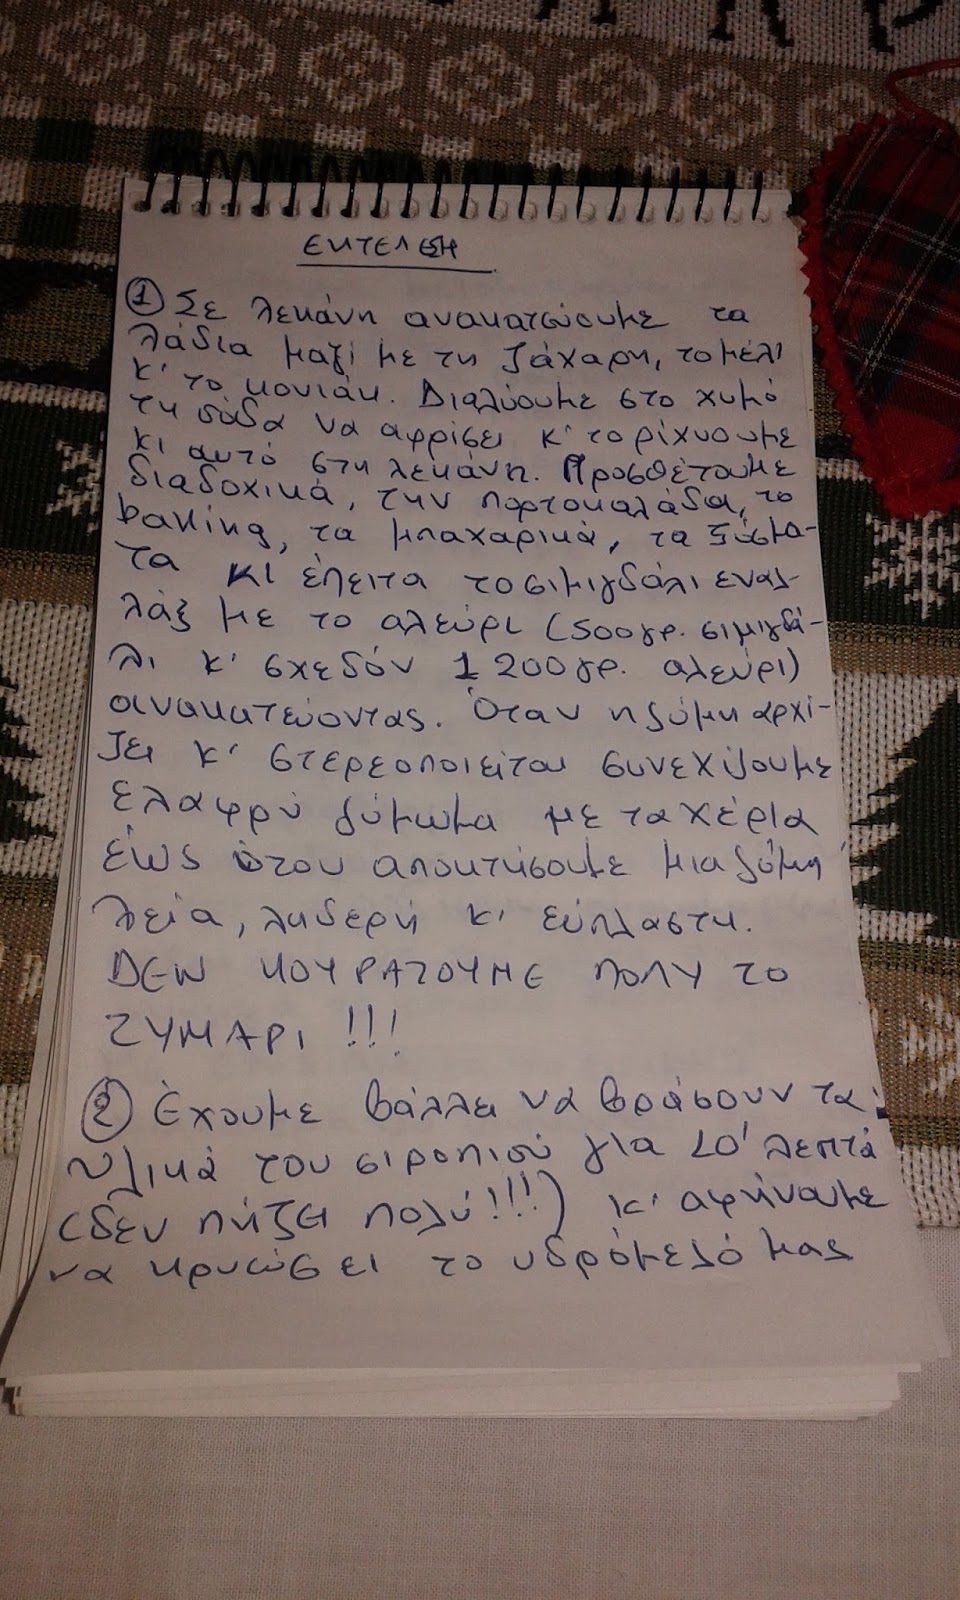 ΕΚΤΕΛΕΣΗ
① Σε λεκάνη ανακατεύουμε τα
λάδια μαζί με τη ζάχαρη, το μέλι
κ' το κονιάκ. Διαλύουμε στο χυμό
τη σόδα να αφρίσει κ' το ρίχνουμε
κι αυτό στη λεκάνη. Προσθέτουμε
διαδοχικά, την πορτοκαλάδα, το
baking, τα μπαχαρικά, τα ξύσμα-
τα κι έπειτα το σιμιγδάλι εναλ-
λάξ με το αλεύρι (500γρ. σιμιγδά-
λι κ' σχεδόν 1200γρ. αλεύρι)
ανακατεύοντας. Όταν η ζύμη αρχί-
ζει κ' στερεοποιείται συνεχίζουμε
ελαφρύ ζύμωμα με τα χέρια
έως ότου αποκτήσουμε μια ζύμη
λεία, λαδερή κ' εύπλαστη.
ΔΕΝ ΚΟΥΡΑΖΟΥΜΕ ΠΟΛΥ ΤΟ
ΖΥΜΑΡΙ !!!
② Έχουμε βάλλει να βράσουν τα
υλικά του σιροπιού για 10' λεπτά
(δεν πήζει πολύ!!!) κ' αφήνουμε
να κρυώσει το υδρόμελό μας